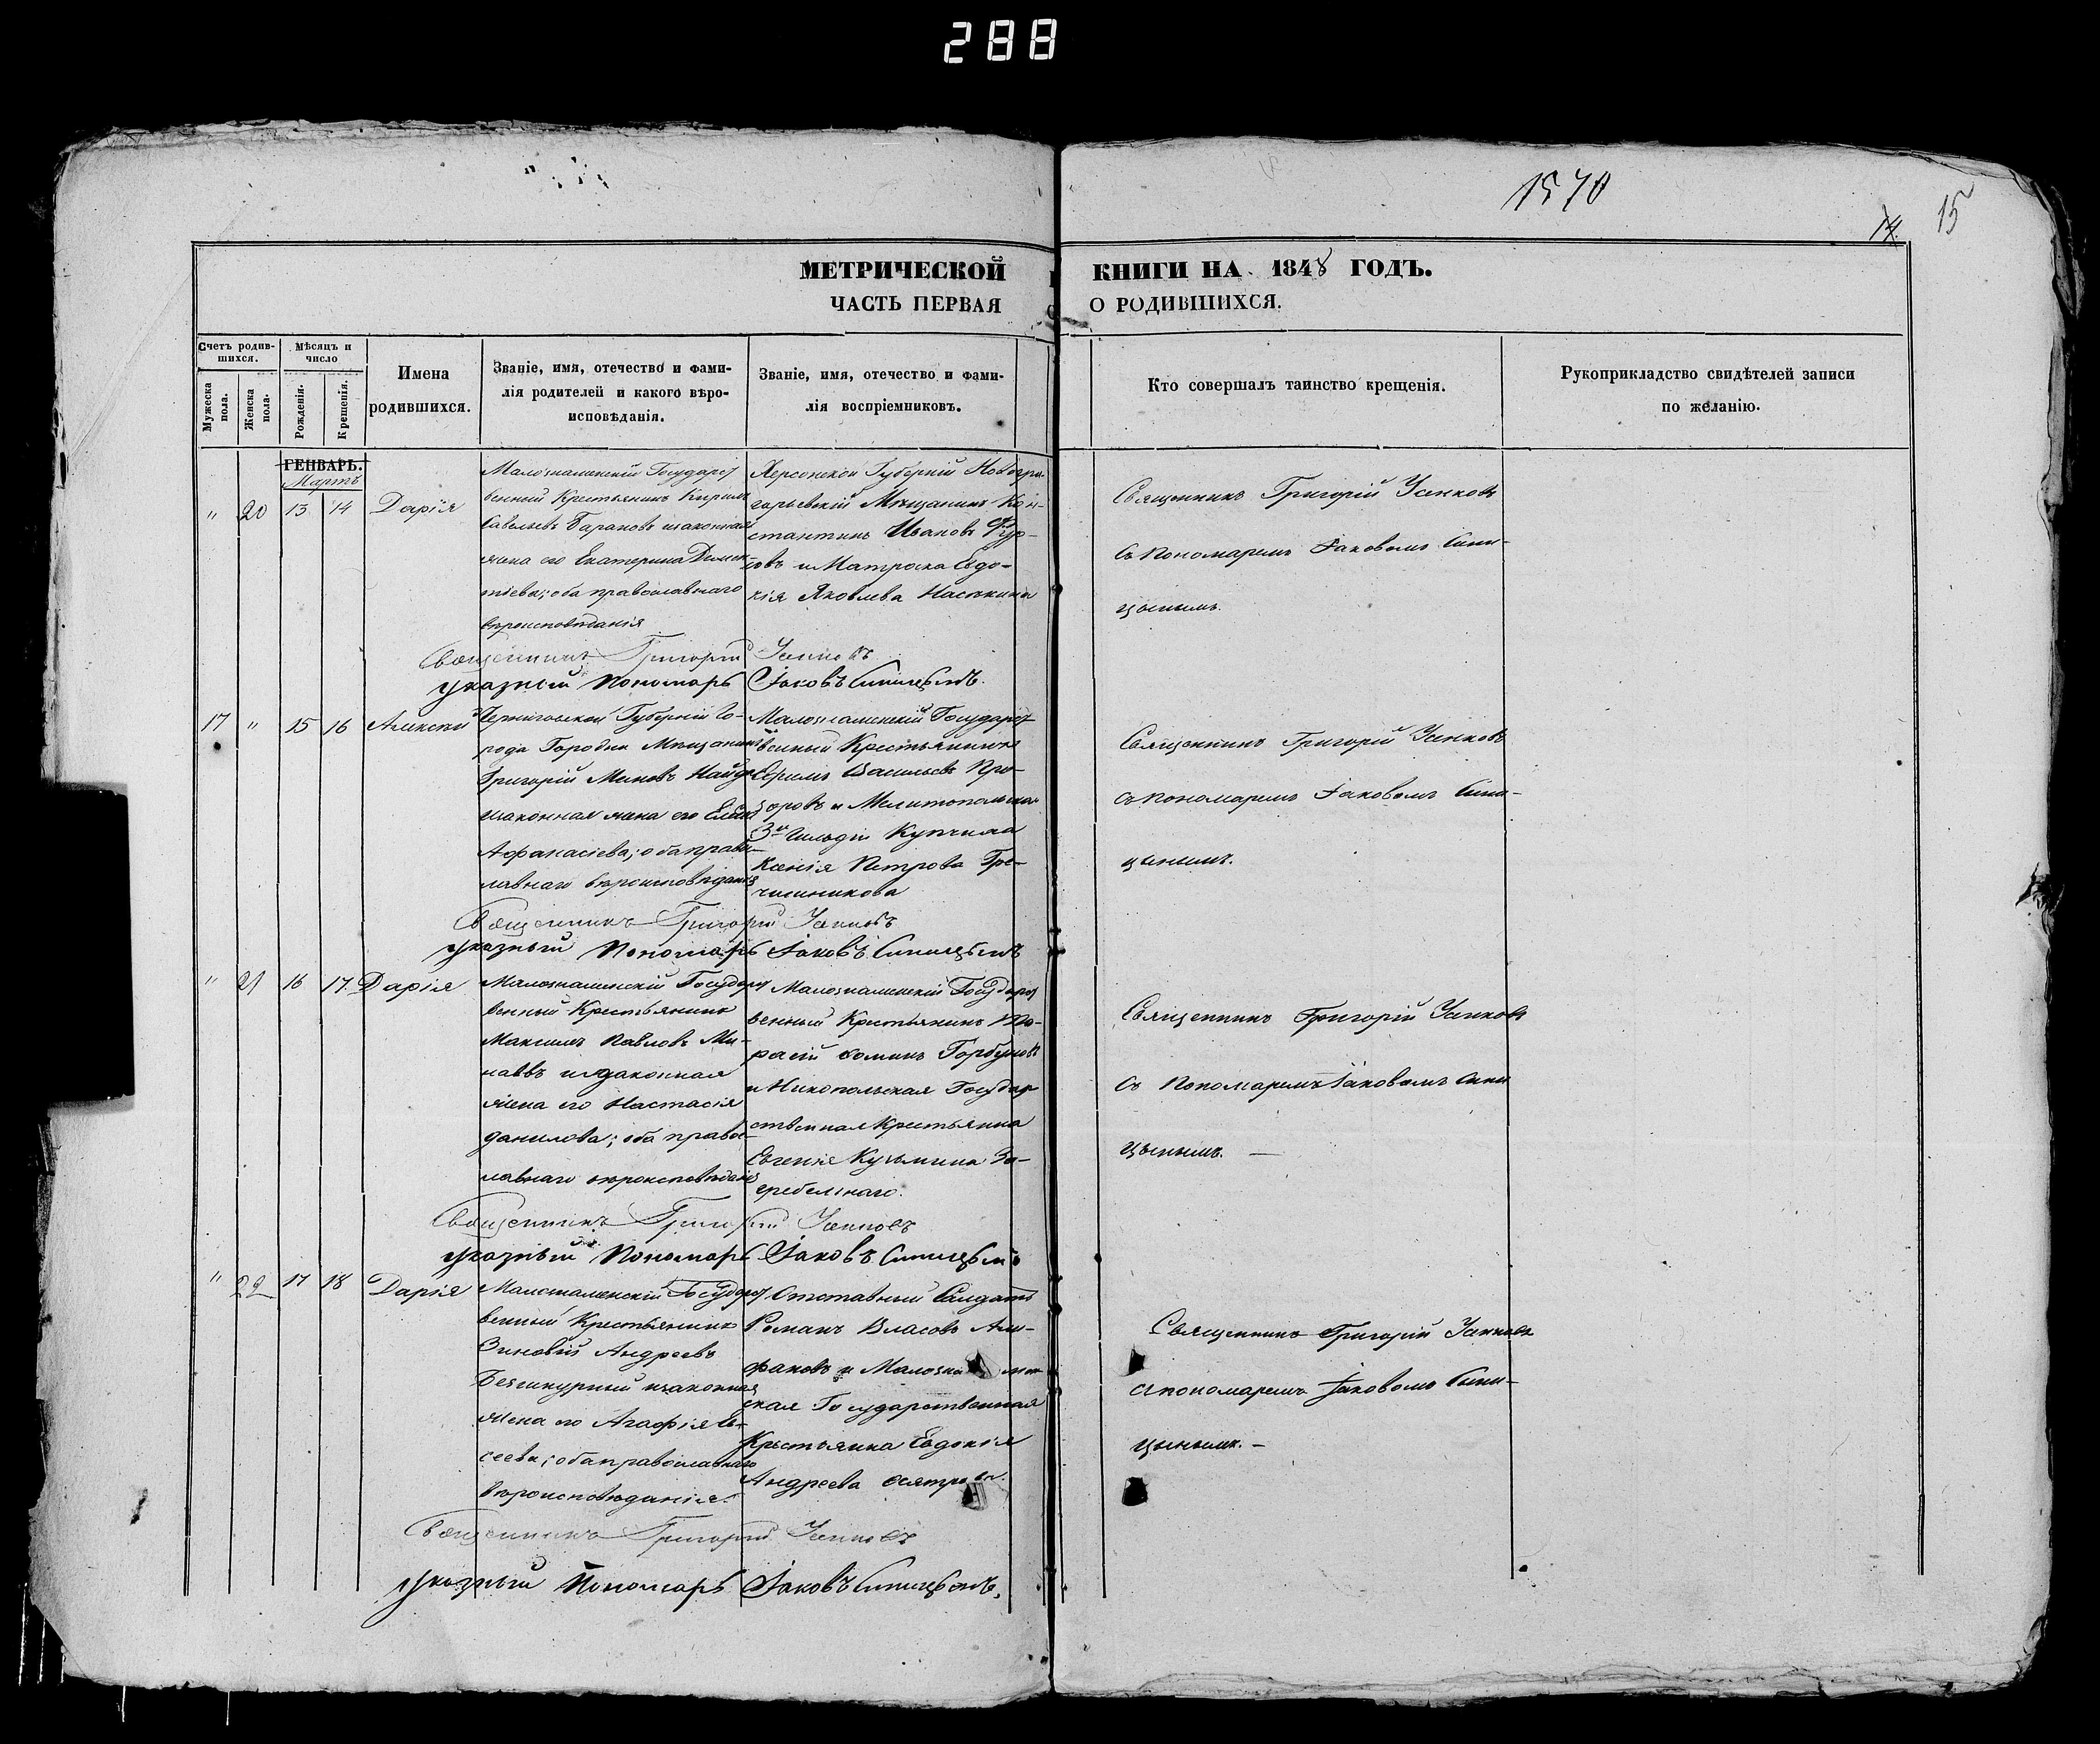 288
1570
14. 15
МЕТРИЧЕСКОЙ КНИГИ НА 1848 ГОДЪ.
ЧАСТЬ ПЕРВАЯ О РОДИВШИХСЯ.
Счетъ родив-
шихся.
Мужеска пола.
Женска пола.
Мѣсяцъ и
число
Рожденія.
Крещенія.
Имена
родившихся.
Званіе, имя, отечество и фами-
лія родителей и какого вѣро-
исповѣданія.
Званіе, имя, отечество и фами-
лія воспріемниковъ.
Кто совершалъ таинство крещенія.
Рукоприкладство свидѣтелей записи
по желанію.
ГЕНВАРЬ.
Мартъ
" 20 13 14 Дарія
Малознаменскій Государст
венный Крестьянинъ Кирилъ
Савельевъ Барановъ изаконная
жена его Екатерина Демен-
тіева; оба православнаго
вѣроисповѣданія
Херсонской Губерніи Новогри-
горьевскій Мѣщанинъ Кон-
стантинъ Ивановъ
и Матроска Евдо-
кія Яковлева
Священникъ Григорій Усенковъ
съ Пономаремъ Іаковомъ Сини-
цынымъ.
Священникъ Григорій Усенковъ
указный Пономарь Іаковъ Синицынъ.
17 " 15 16 Алексѣй
Черниговской Губерніи го-
рода Городни Мѣщанинъ
Григорій Миновъ
изаконная жена его
Афанасіева; оба право-
лавнаго вѣроисповѣданія
Малознаменскій Государст
венный Крестьянинъ
Васильевъ Про-
и Мелитопольская
3й Гильдіи Купчиха
Ксенія Петрова Гре-
чишникова
Священникъ Григорій Усенковъ
съ Пономаремъ Іаковомъ Сини-
цынымъ.
Священникъ Григорій Усенковъ
указный Пономарь Іаковъ Синицынъ
" 21 16 17 Дарія
Малознаменскій Государст
венный Крестьянинъ
Максимъ Павловъ Ми-
изаконная
жена его Настасія
Данилова; оба право-
лавнаго вѣроисповѣданія
Малознаменскій Государст
венный Крестьянинъ
Фоминъ Горбуновъ
и Никопольская Государ
ственная Крестьянка
Евгенія Кузьмина За-
гребельнаго.
Священникъ Григорій Усенковъ
съ Пономаремъ Іаковомъ Сини
цынымъ. —
Священникъ Григорій Усенковъ
указный Пономарь Іаковъ Синицынъ
" 22 17 18 Дарія
Малознаменскій Государст
венный Крестьянинъ
Зиновій Андреевъ
изаконная
жена его Агафія
оба православнаго
вѣроисповѣданія.
Отставный Солдатъ
Романъ Власовъ
и
ская Государственная
Крестьянка Евдокія
Андреева
Священникъ Григорій Усенковъ
съ пономаремъ Іаковомъ Сини-
цынымъ. —
Священникъ Григорій Усенковъ
указный Пономарь Іаковъ Синицынъ.